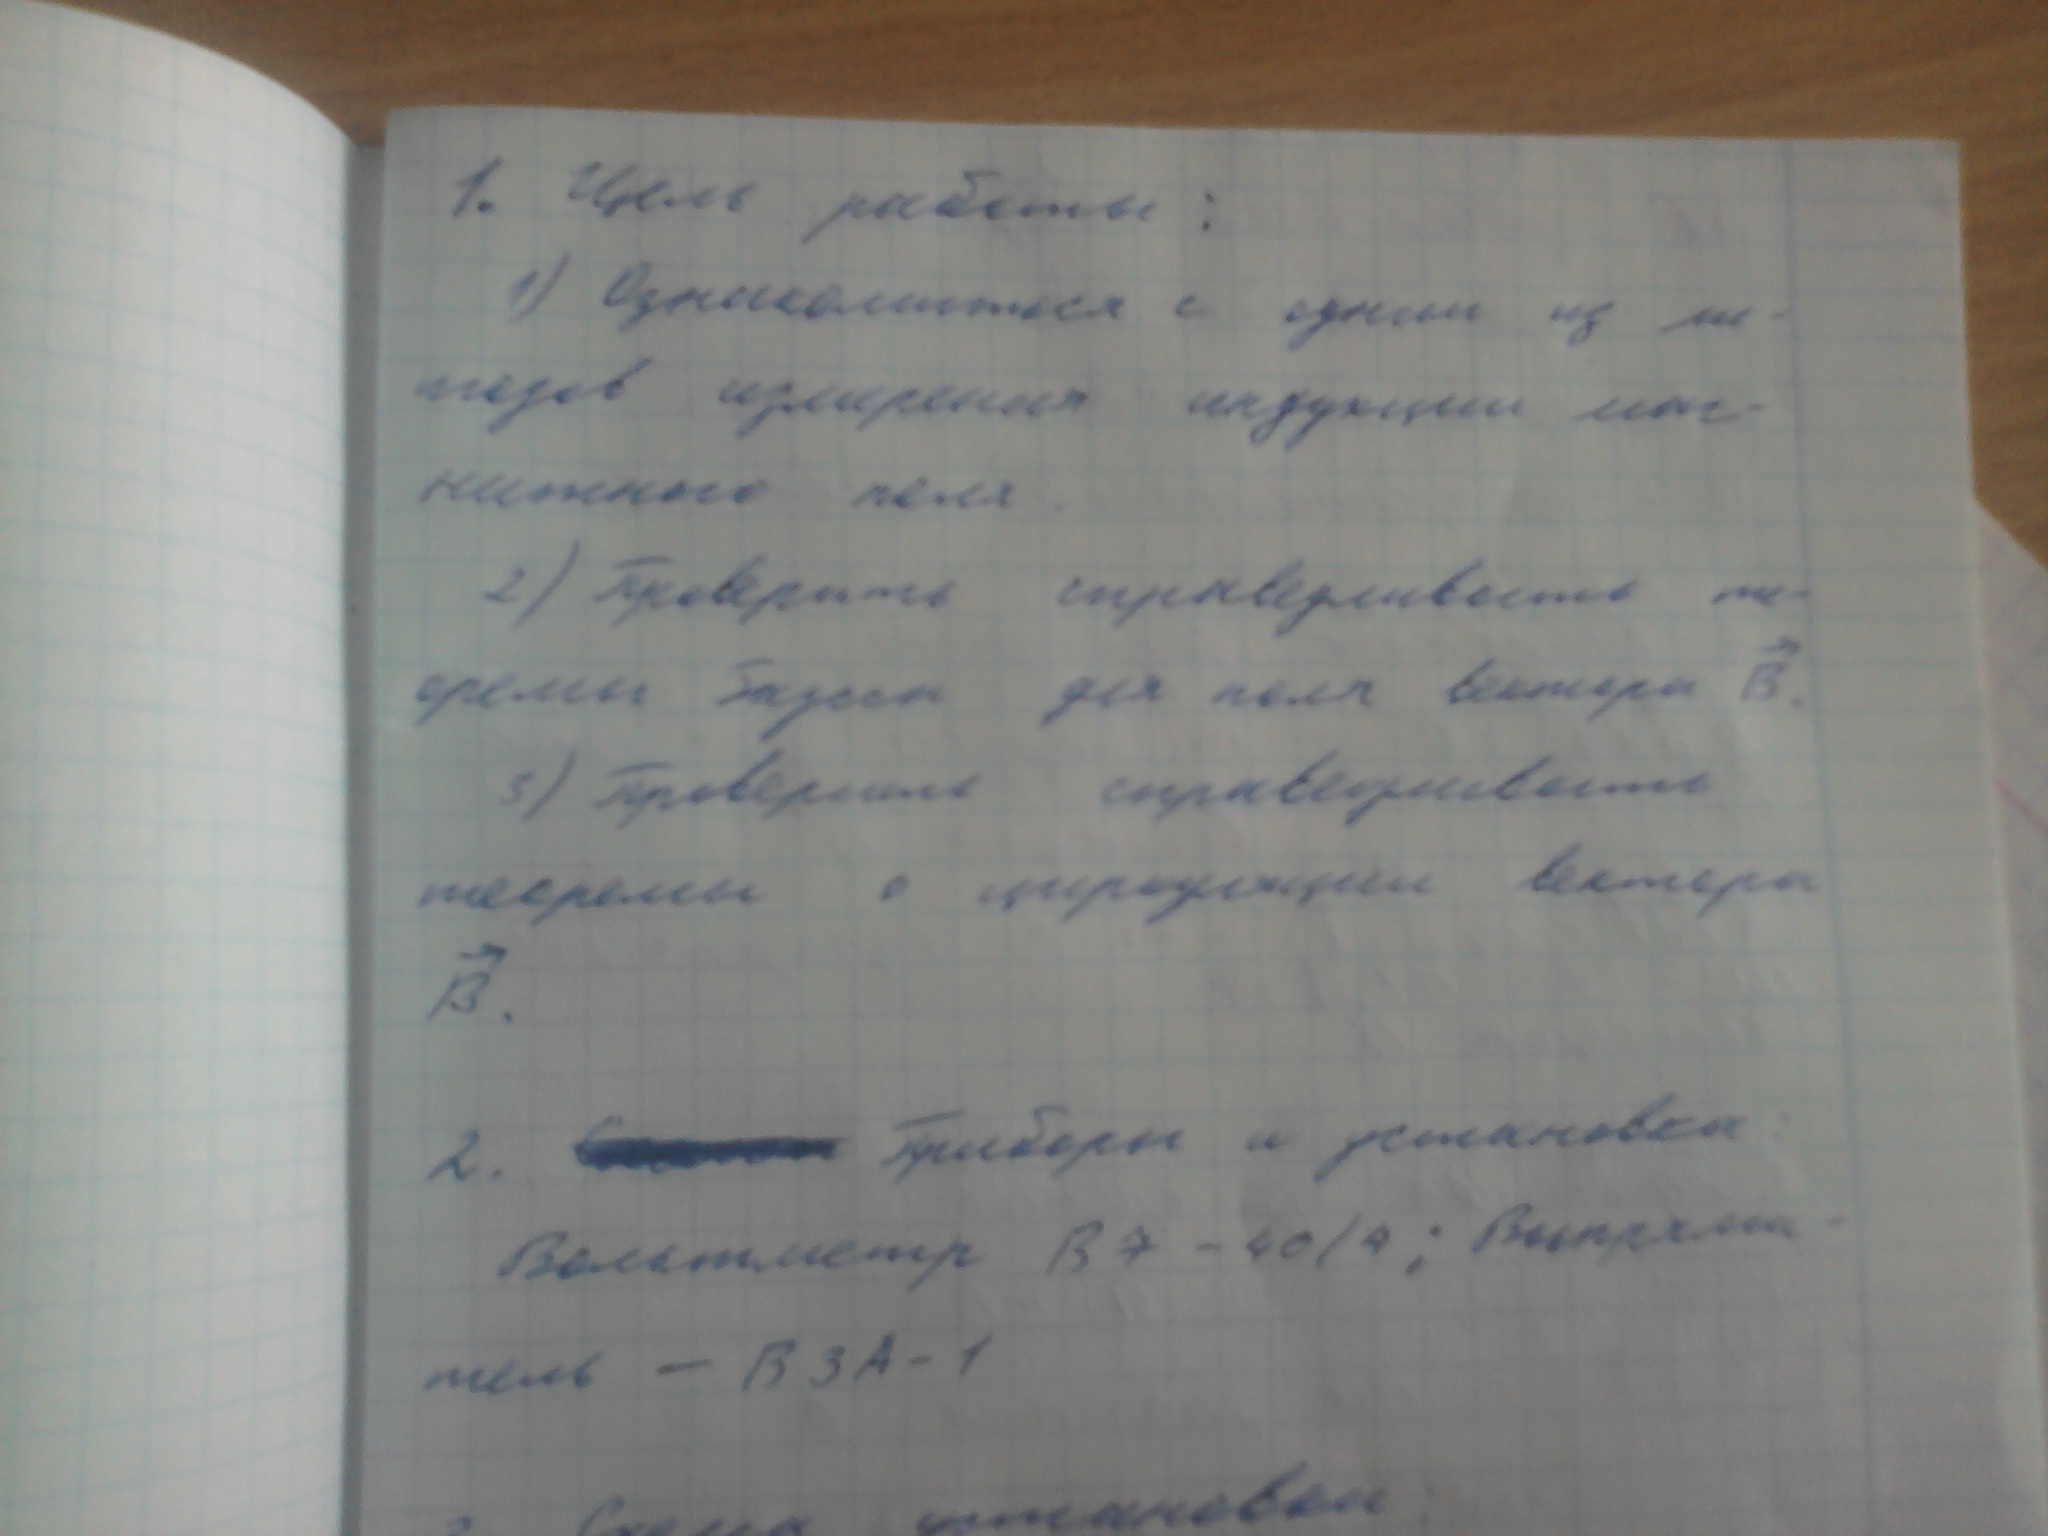 1. Цель работы:
1) Ознакомиться с одним из ме-
тодов измерения индукции маг-
нитного поля.
2) Проверить справедливость те-
оремы Гаусса для поля вектора B⃗.
3) Проверить справедливость
теоремы о циркуляции вектора
B⃗.
2. Приборы и установка:
Вольтметр В7-40/4; Выпрями-
тель – ВЗА-1
3. Схема установки: